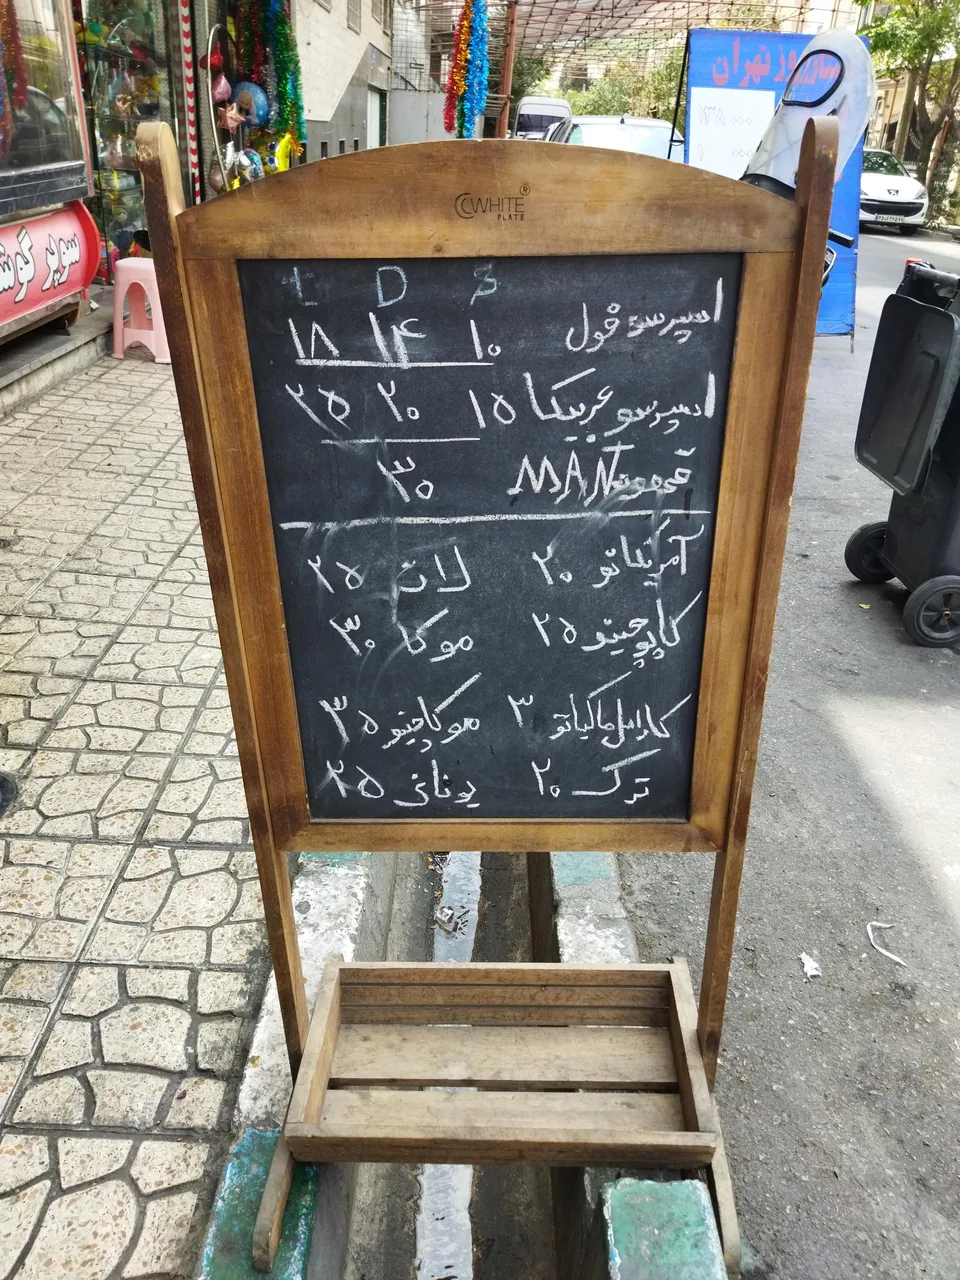 CWHITE®
PLATE
t D S
اسپرسو فول ۱۰ ۱۴ ۱۸
اسپرسو عربیکا ۱۵ ۲۰ ۲۵
قهوه MAN ۳۰
آمریکانو ۲۰ لاته ۲۵
کاپوچینو ۲۵ موکا ۳۰
کارامل ماکیاتو ۳۰ موکاچینو ۳۵
ترک ۲۰ یونانی ۲۵
سوپر گوشت
تهران